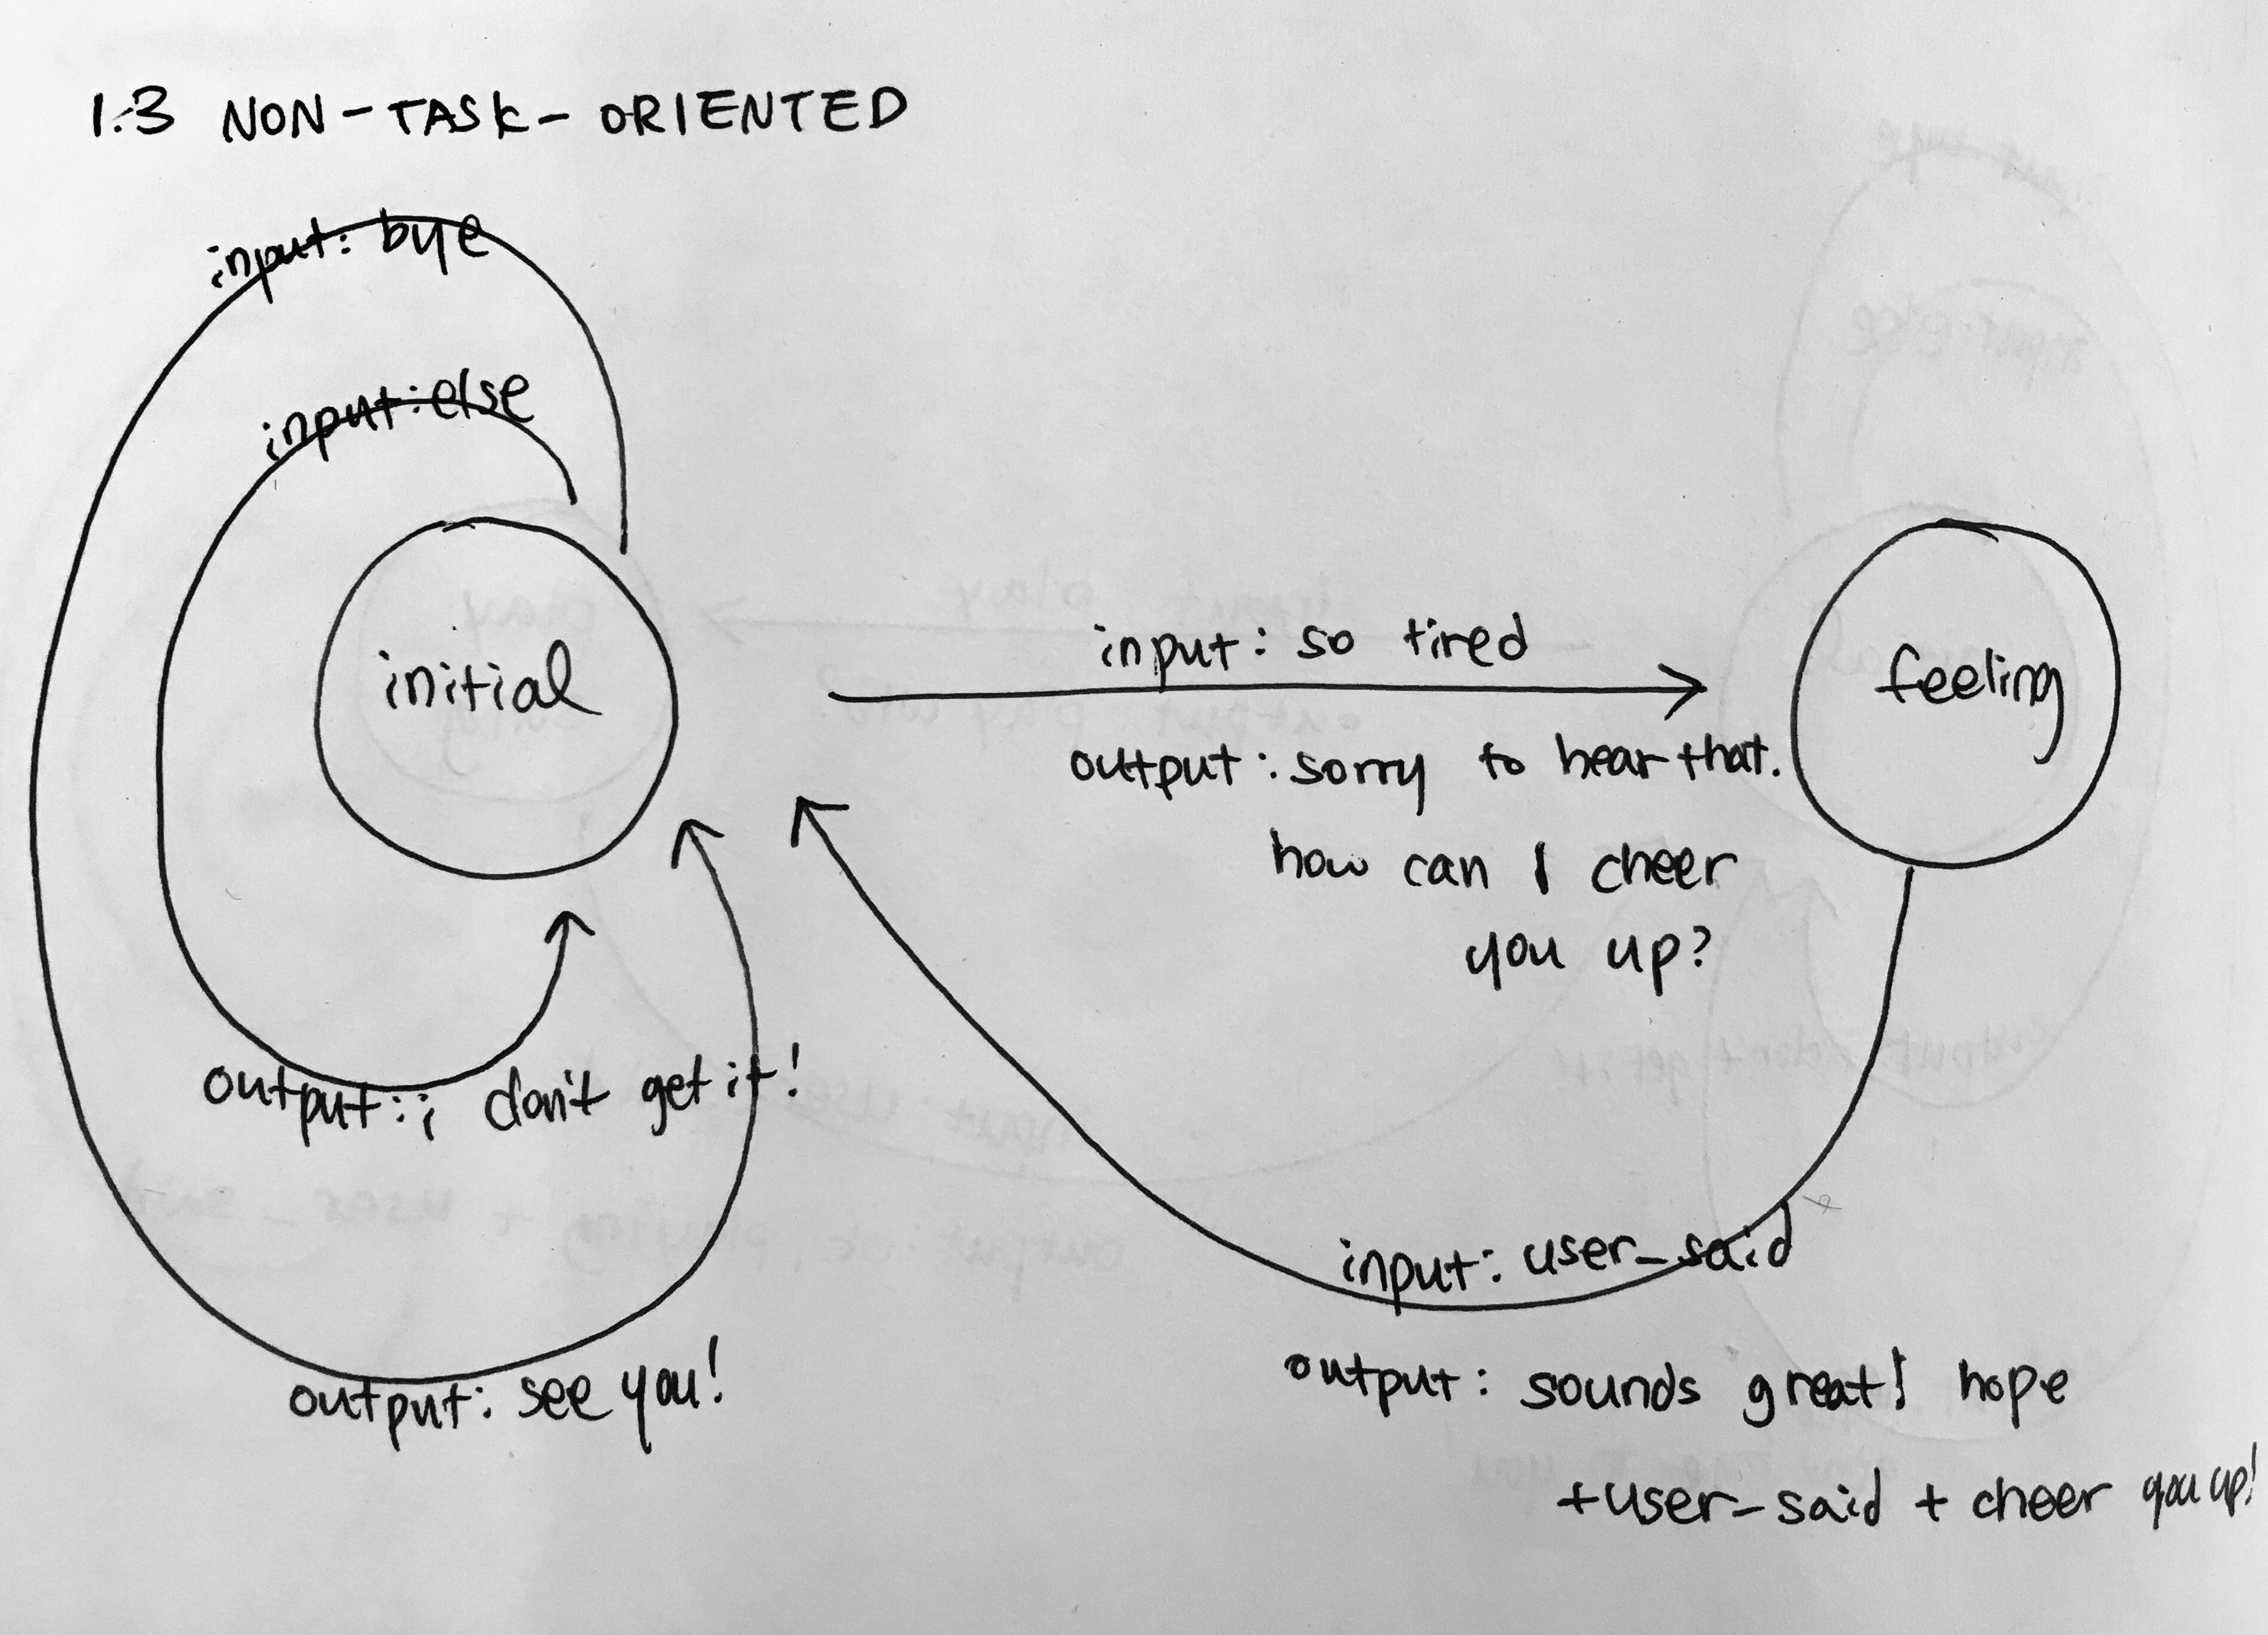 1.3 NON-TASK-ORIENTED
input: bye
input: else
initial
input: so tired
feeling
output: sorry to hear that.
how can I cheer
you up?
output: i don't get it!
input: user_said
output: see you!
output: sounds great! hope
+user_said + cheer you up!